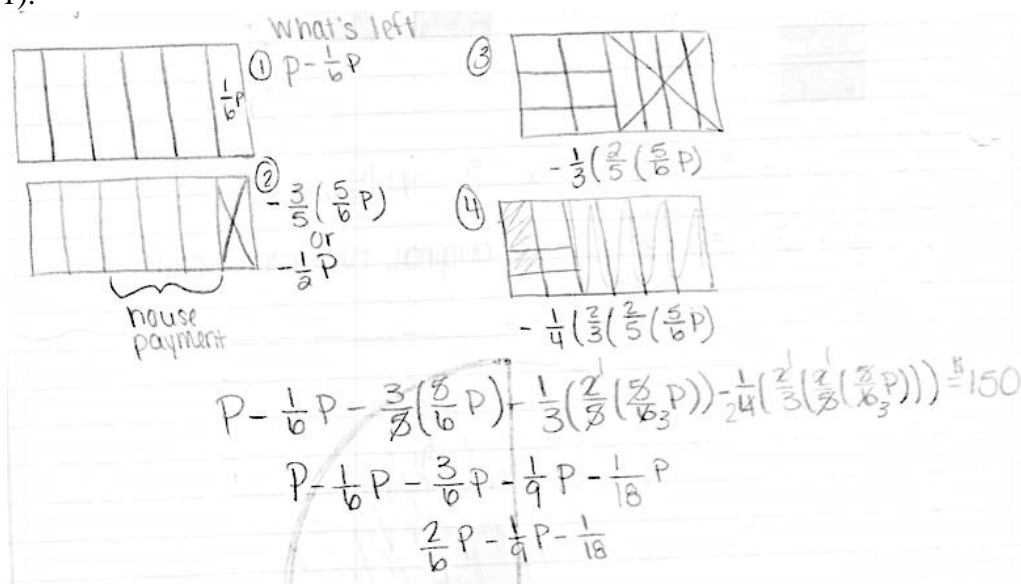 1).
What's left
① P - 1/6 P
1/6 P
② - 3/5 (5/6 P)
or
- 1/2 P
house
payment
③
- 1/3 (2/5 (5/6 P)
④
- 1/4 (2/3 (2/5 (5/6 P)
P - 1/6 P - 3/5 (5/6 P) - 1/3 (2/5 (5/6 P)) - 1/4 (2/3 (2/5 (5/6 P))) = 150
P - 1/6 P - 3/6 P - 1/9 P - 1/18 P
2/6 P - 1/9 P - 1/18